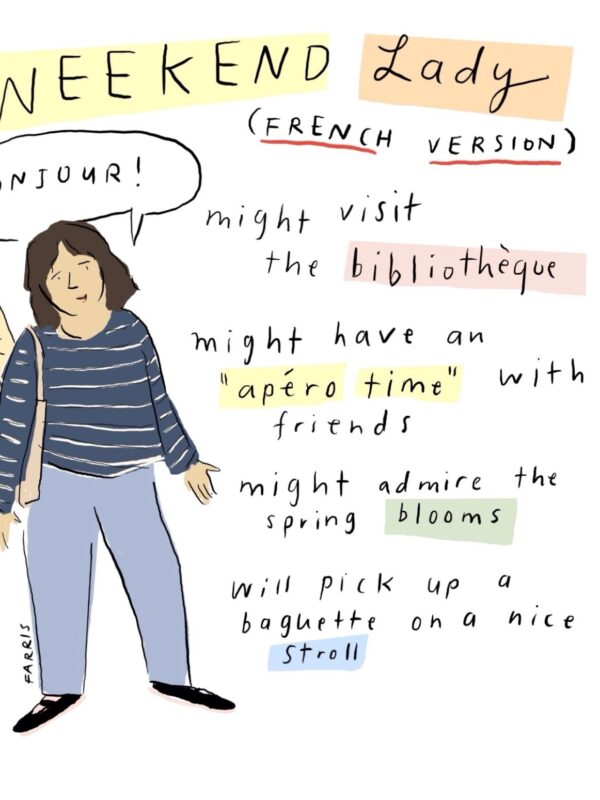 WEEKEND Lady
(FRENCH VERSION)
ONJOUR!
might visit
the bibliothèque
might have an
"apéro time" with
friends
might admire the
spring blooms
will pick up a
baguette on a nice
stroll
FARRIS